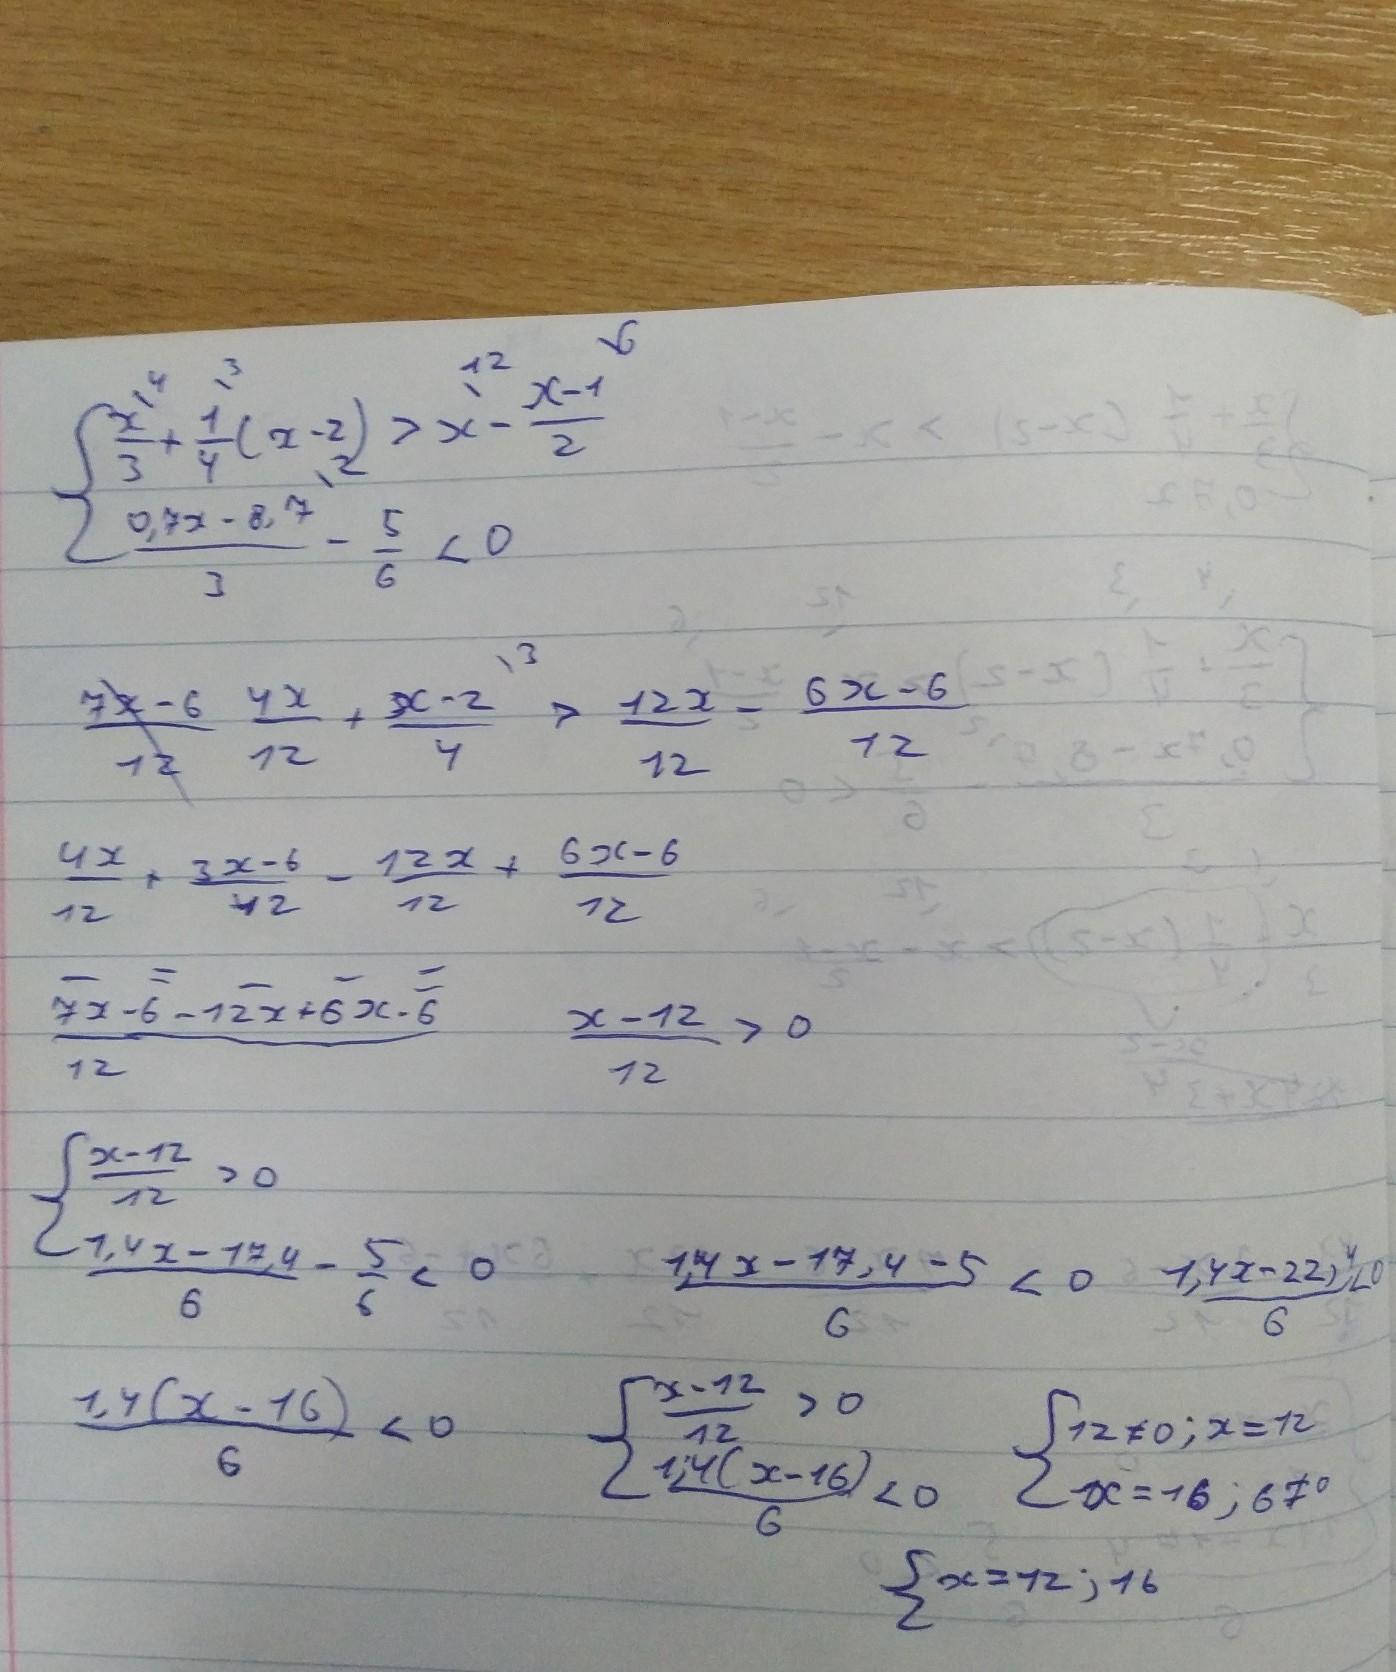 { x/3 \4 + 1/4 \3 (x-2) > x \12 - (x-1)/2 \6
{ (0,7x-8,7)/3 \2 - 5/6 < 0
(7x-6)/12 4x/12 + (x-2)/4 \3 > 12x/12 - (6x-6)/12
4x/12 + (3x-6)/12 - 12x/12 + (6x-6)/12
(7x-6-12x+6x-6)/12 (x-12)/12 > 0
{ (x-12)/12 > 0
{ (1,4x-17,4)/6 - 5/6 < 0 (1,4x-17,4-5)/6 < 0 (1,4x-22,4)/6 < 0
1,4(x-16)/6 < 0 { (x-12)/12 > 0 { 12≠0; x=12
{ 1,4(x-16)/6 < 0 { x=16; 6≠0
{ x=12; 16